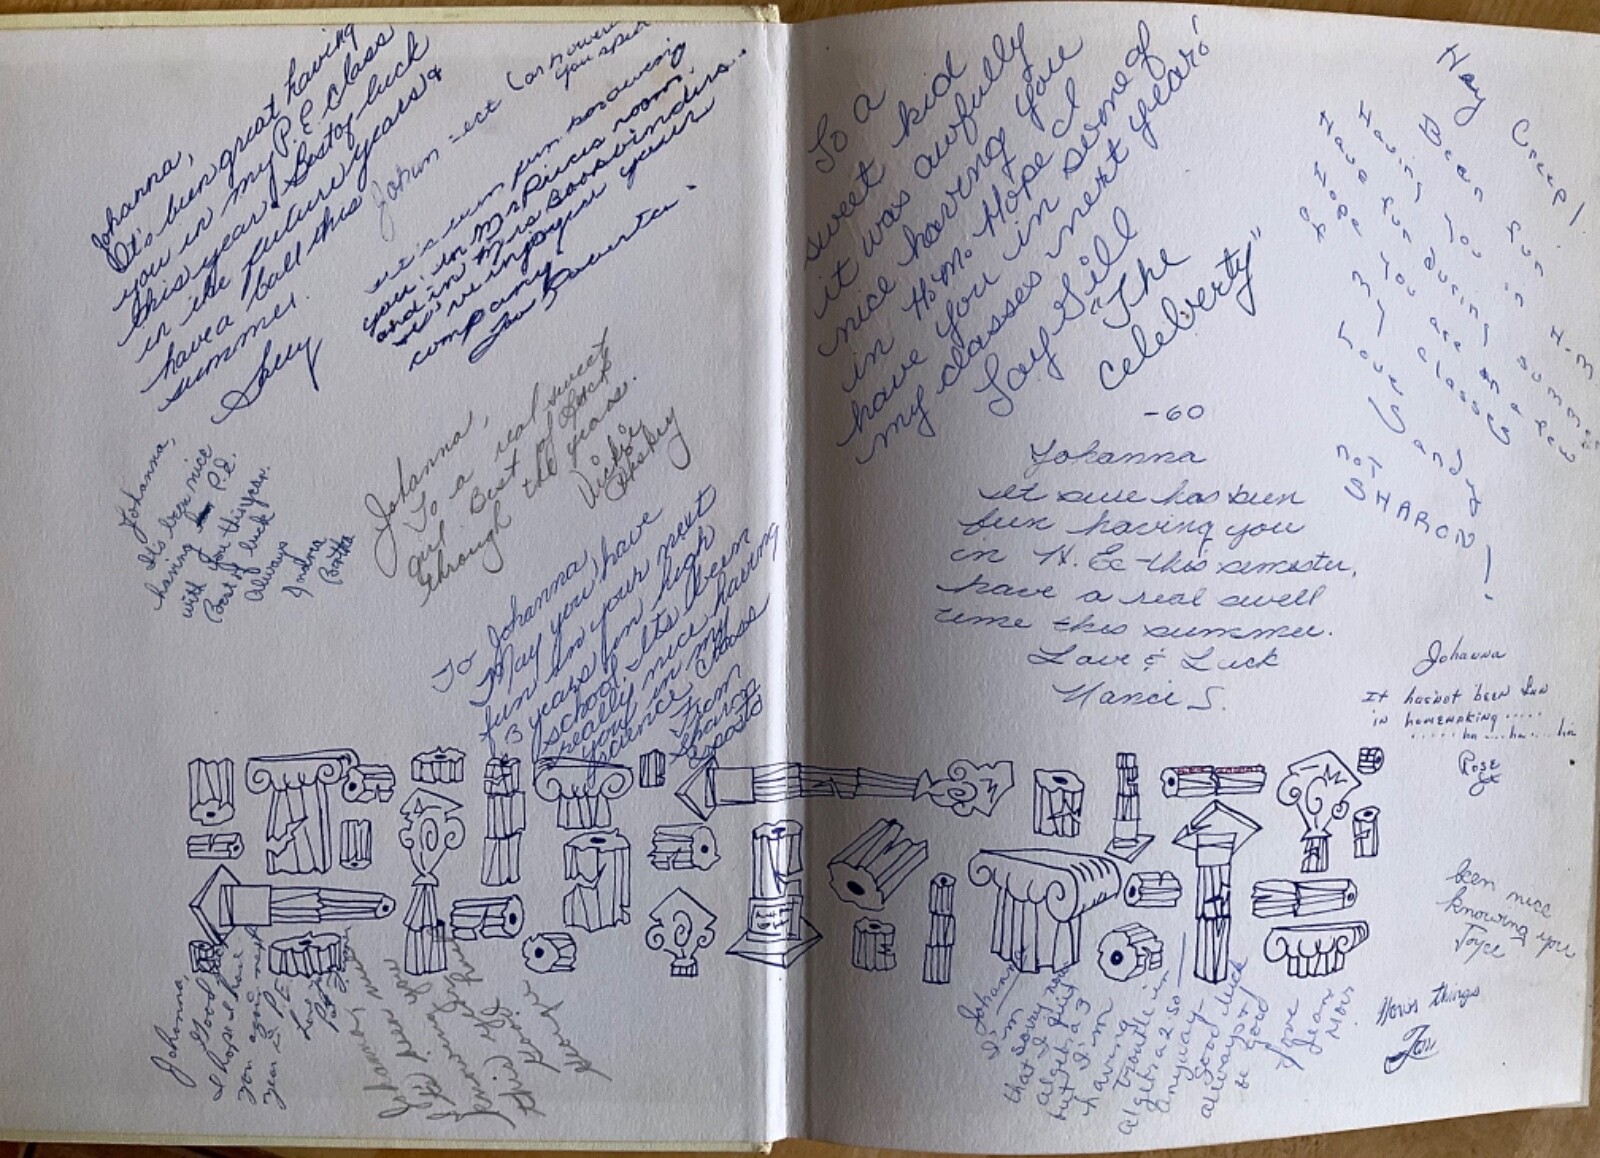 Johanna,
It's been great having
you in my P.E. Class
this year. Best of luck
in the future years &
have a ball this
summer.
Sully
Johann -ect (or however
you spell
it's been fun borrowing
you, in Mr Rices room
and in Mrs Bookbinders...
company
Johanna,
It's been nice
having P.E.
with you this year.
Best of luck
Always
Johanna,
To a real sweet
girl. Best of luck
through the years.
Vickie
To Johanna
May you have
fun in your next
3 years in high
school. Its been
really nice having
you in my
science Class
From
Sharon
Esposto
Johanna,
Good luck
I hope I have
you again next
year in P.E.
Love,
Pat
Johanna,
It's been nice
knowing you
this
To a
sweet kid
it was awfully
nice having you
in H.m. Hope I
have you in some of
my classes next year!
Gill
"The
Celeberty"
Hay Creep!
Bean fun
Having you in H-m
Have fun during summer
Hope you are in a few
of my classes
Love
Sandy
not
SHARON!
-60
Johanna
it sure has been
fun having you
in H. Ec this semester,
have a real swell
time this summer.
Love & Luck
Nanci S.
Johanna
It hasnot been fun
in homemaking.....
.....ha...ha...ha
Rose
been nice
knowing you
Joyce
How's things
Johanna
I'm sorry now
that I quit
algebra 3
but I'm
having
trouble in
algebra 2 so—
anyway—
Good luck
always &
be good
Love
Jean